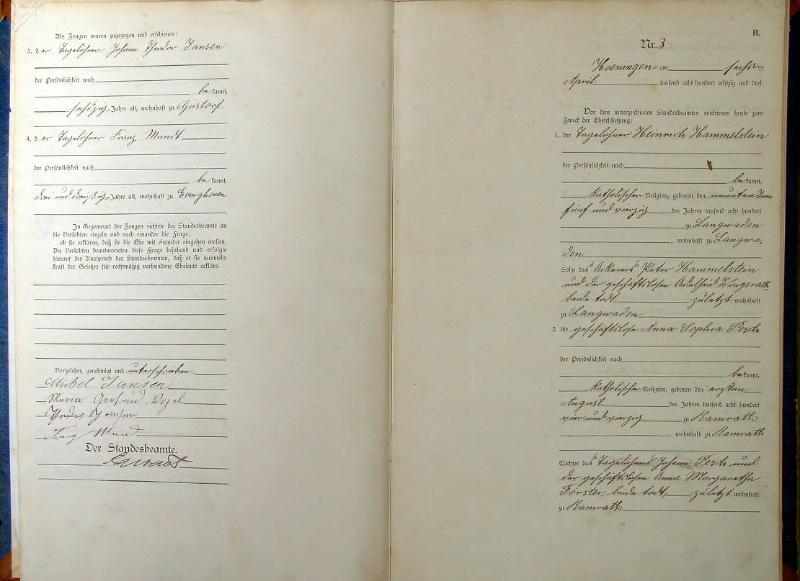 Als Zeugen waren zugezogen und erschienen:
3. der Tagelöhner Johann Theodor Jansen
der Persönlichkeit nach
bekannt,
sechszig Jahre alt, wohnhaft zu Gustorf
4. der Tagelöhner Franz Mundt
der Persönlichkeit nach
bekannt,
drei und dreißig Jahre alt, wohnhaft zu
In Gegenwart der Zeugen richtete der Standesbeamte an
die Verlobten einzeln und nach einander die Frage:
ob sie erklären, daß sie die Ehe mit einander eingehen wollen.
Die Verlobten beantworteten diese Frage bejahend und erfolgte
hierauf der Ausspruch des Standesbeamten, daß er sie nunmehr
kraft des Gesetzes für rechtmäßig verbundene Eheleute erkläre.
Vorgelesen, genehmigt und unterschrieben
Michel Jansen
Maria Gertrud
Theodor Jansen
Franz Mund
Der Standesbeamte.
B.
Nr. 3
Hoeningen am sechsten
April tausend acht hundert achtzig und drei.
Vor dem unterzeichneten Standesbeamten erschienen heute zum
Zweck der Eheschließung:
1. der Tagelöhner Heinrich Hammelstein
der Persönlichkeit nach
bekannt,
katholischer Religion, geboren den neunten Juni
fünf und vierzig des Jahres tausend acht hundert
zu Langwaden
, wohnhaft zu Langwa-
den
Sohn des Ackerers Peter Hammelstein
und der geschäftslosen Adelheid Wingerath
beide todt zuletzt wohnhaft
zu Langwaden
2. die geschäftslose Anna Sophia Pesch
der Persönlichkeit nach
bekannt,
katholischer Religion, geboren den ersten
August des Jahres tausend acht hundert
vier und vierzig zu Ramrath
, wohnhaft zu Ramrath
Tochter des Tagelöhners Johann Pesch und
der geschäftslosen Anna Margaretha
Förster, beide todt, zuletzt wohnhaft
zu Ramrath